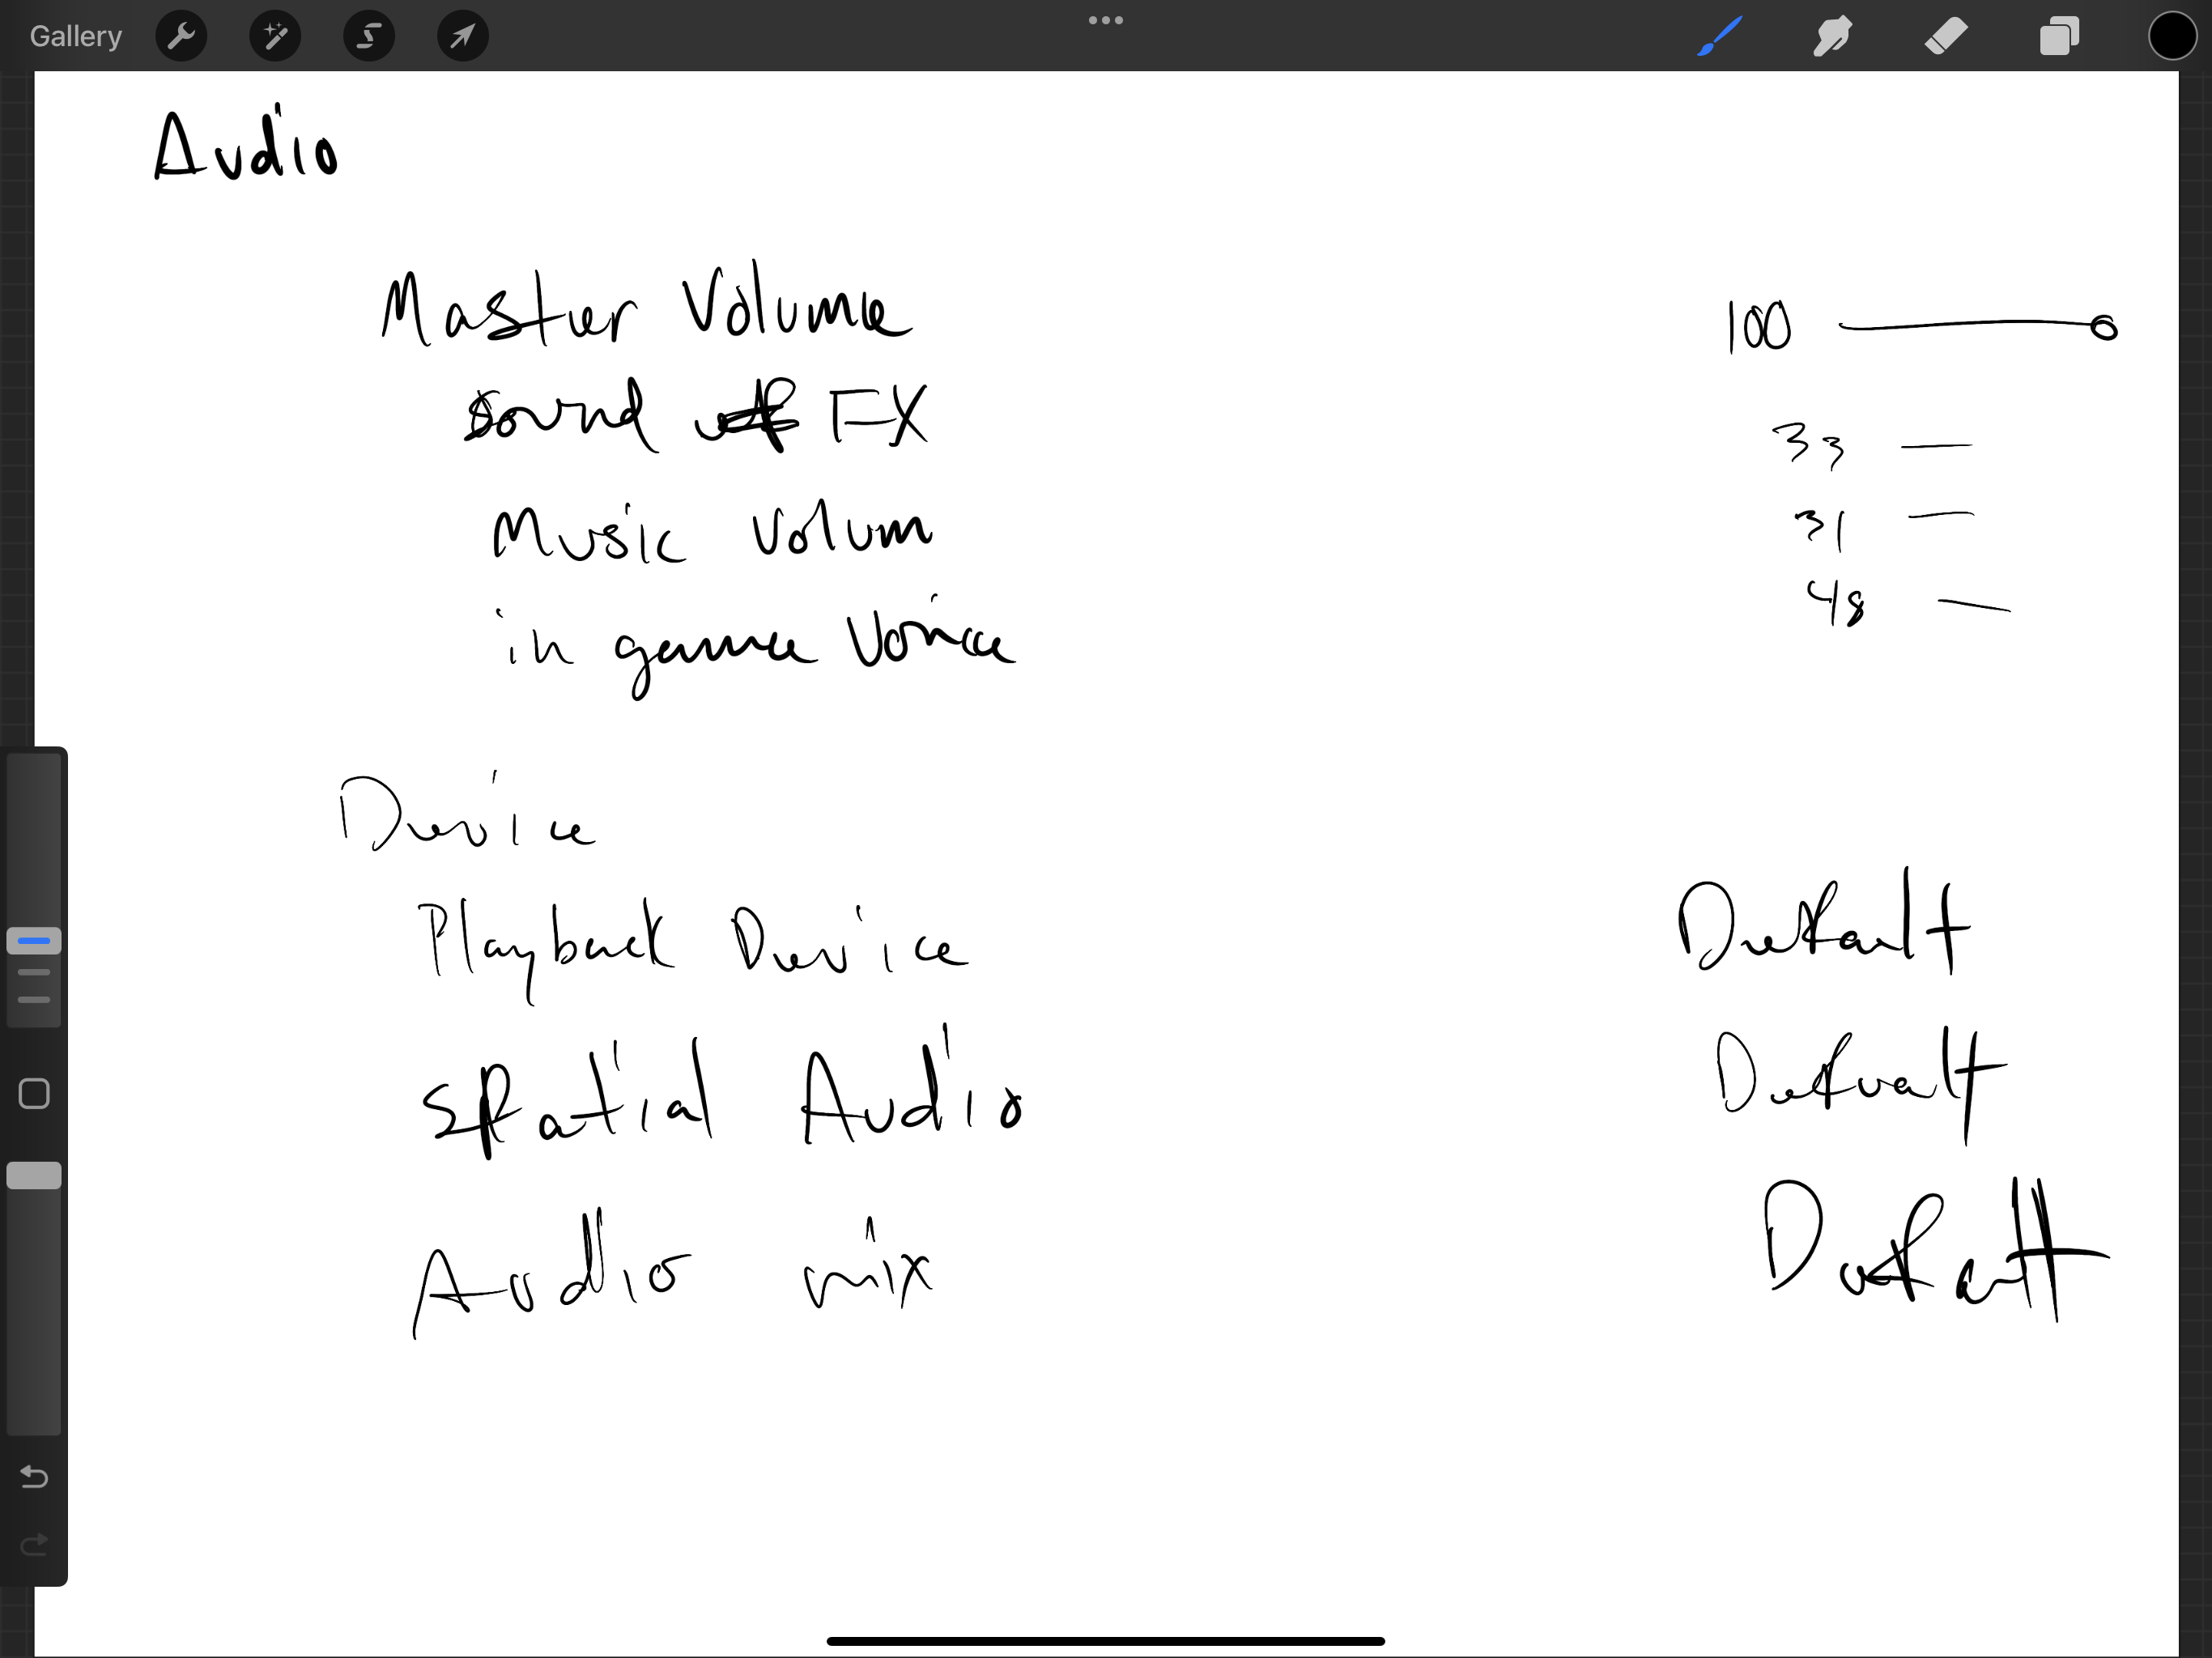 Gallery
Audio
Master Volume 100
Sound FX 33
Music Volum 31
in game Voice 48
Device
Playback Device Default
Spatial Audio Default
Audio mix Default